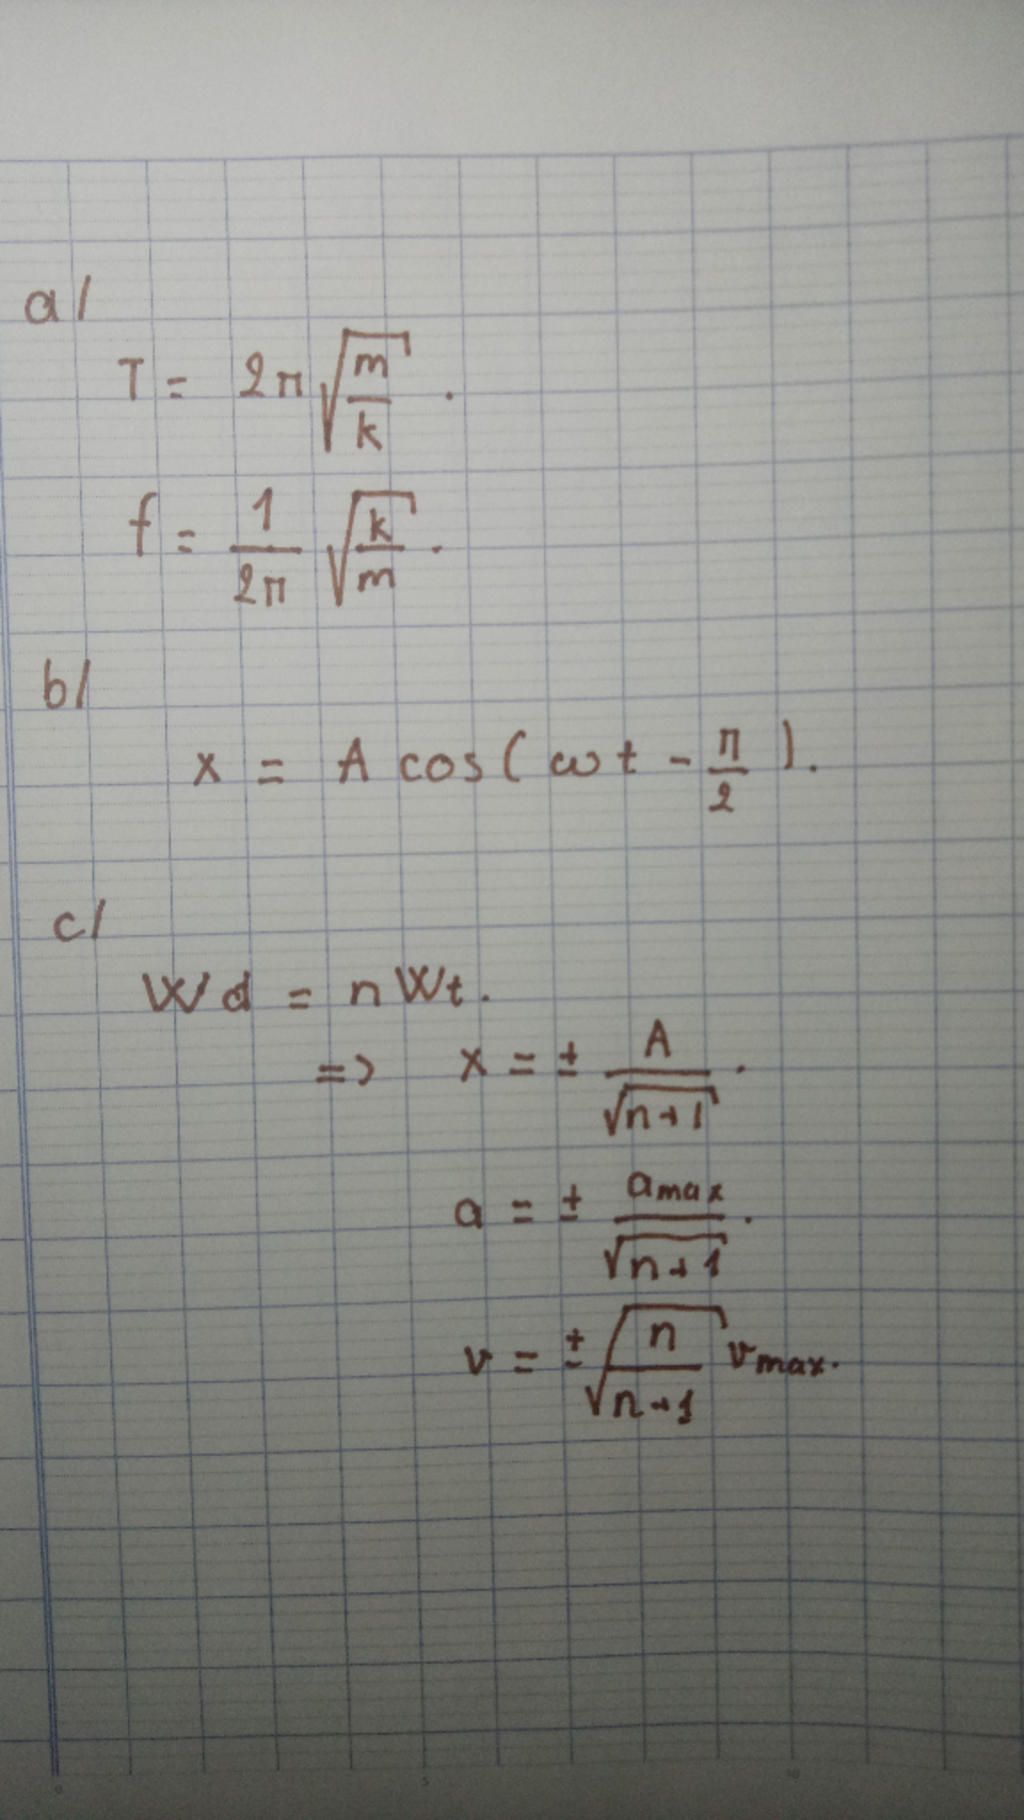 a/
T = 2π √(m/k) .
f = 1/2π √(k/m) .
b/
x = A cos( ωt - π/2 ).
c/
Wd = n Wt.
=> x = ± A/√(n+1) .
a = ± amax/√(n+1) .
v = ± √(n/(n+1)) vmax.